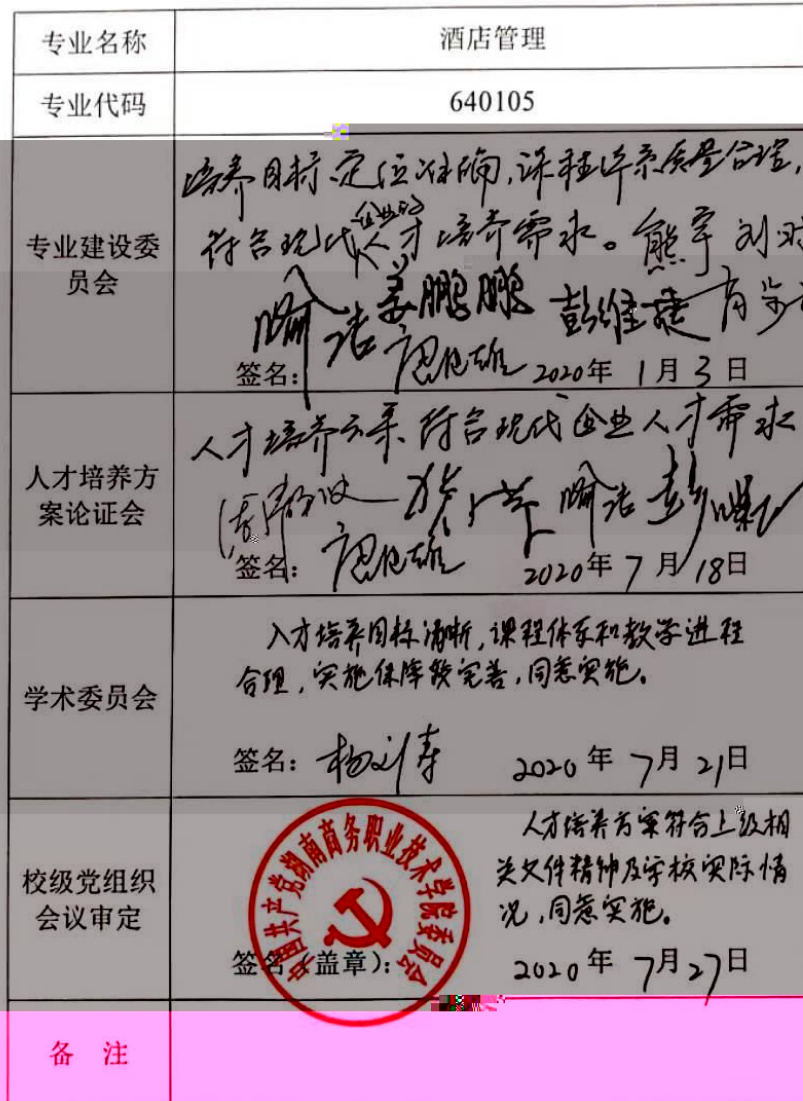 专业名称 酒店管理
专业代码 640105
专业建设委
员会
培养目标定位准确,课程体系质量合理,
企业的
符合现代人才培养需求。熊宇 刘
喻洁 姜鹏鹏 彭维捷
签名: 2020年 1月 3日
人才培养方
案论证会
人才培养方案符合现代企业人才需求
喻洁 彭
签名: 2020年 7月 18日
学术委员会
人才培养目标清晰,课程体系和教学进程
合理,实施保障较完善,同意实施。
签名: 杨 2020年 7月 21日
校级党组织
会议审定
中国共产党湖南商务职业技术学院委员会
人才培养方案符合上级相
关文件精神及学校实际情
况,同意实施。
签名(盖章): 2020年 7月 27日
备 注